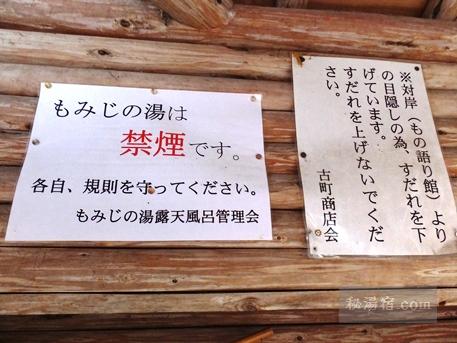 もみじの湯は
禁煙です。
各自、規則を守ってください。
もみじの湯露天風呂管理会
※対岸（もの語り館）より
の目隠しの為、すだれを下
げています。
すだれを上げないでくだ
さい。
古町商店会
秘湯宿.com